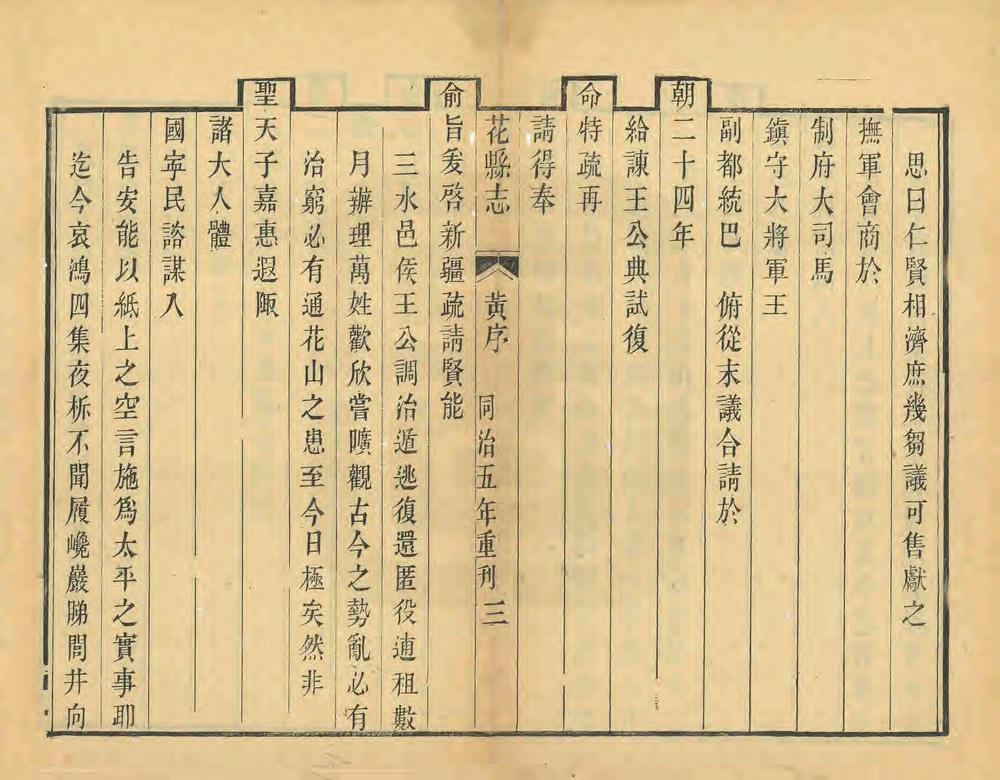 思曰仁賢相濟庶幾芻議可售獻之
撫軍會商於
制府大司馬
鎮守大將軍王
副都統巴　俯從末議合請於
朝二十四年
給諫王公典試復
命特疏再
請得奉
花縣志　黃序　同治五年重刊　三
俞旨爰啓新疆疏請賢能
三水邑侯王公調治遁逃復還匿役逋租數
月辦理萬姓歡欣嘗曠觀古今之勢亂必有
治窮必有通花山之患至今日極矣然非
聖天子嘉惠遐陬
諸大人體
國寧民諮謀入
告安能以紙上之空言施爲太平之實事耶
迄今哀鴻四集夜柝不聞履巉巖睇閭井向